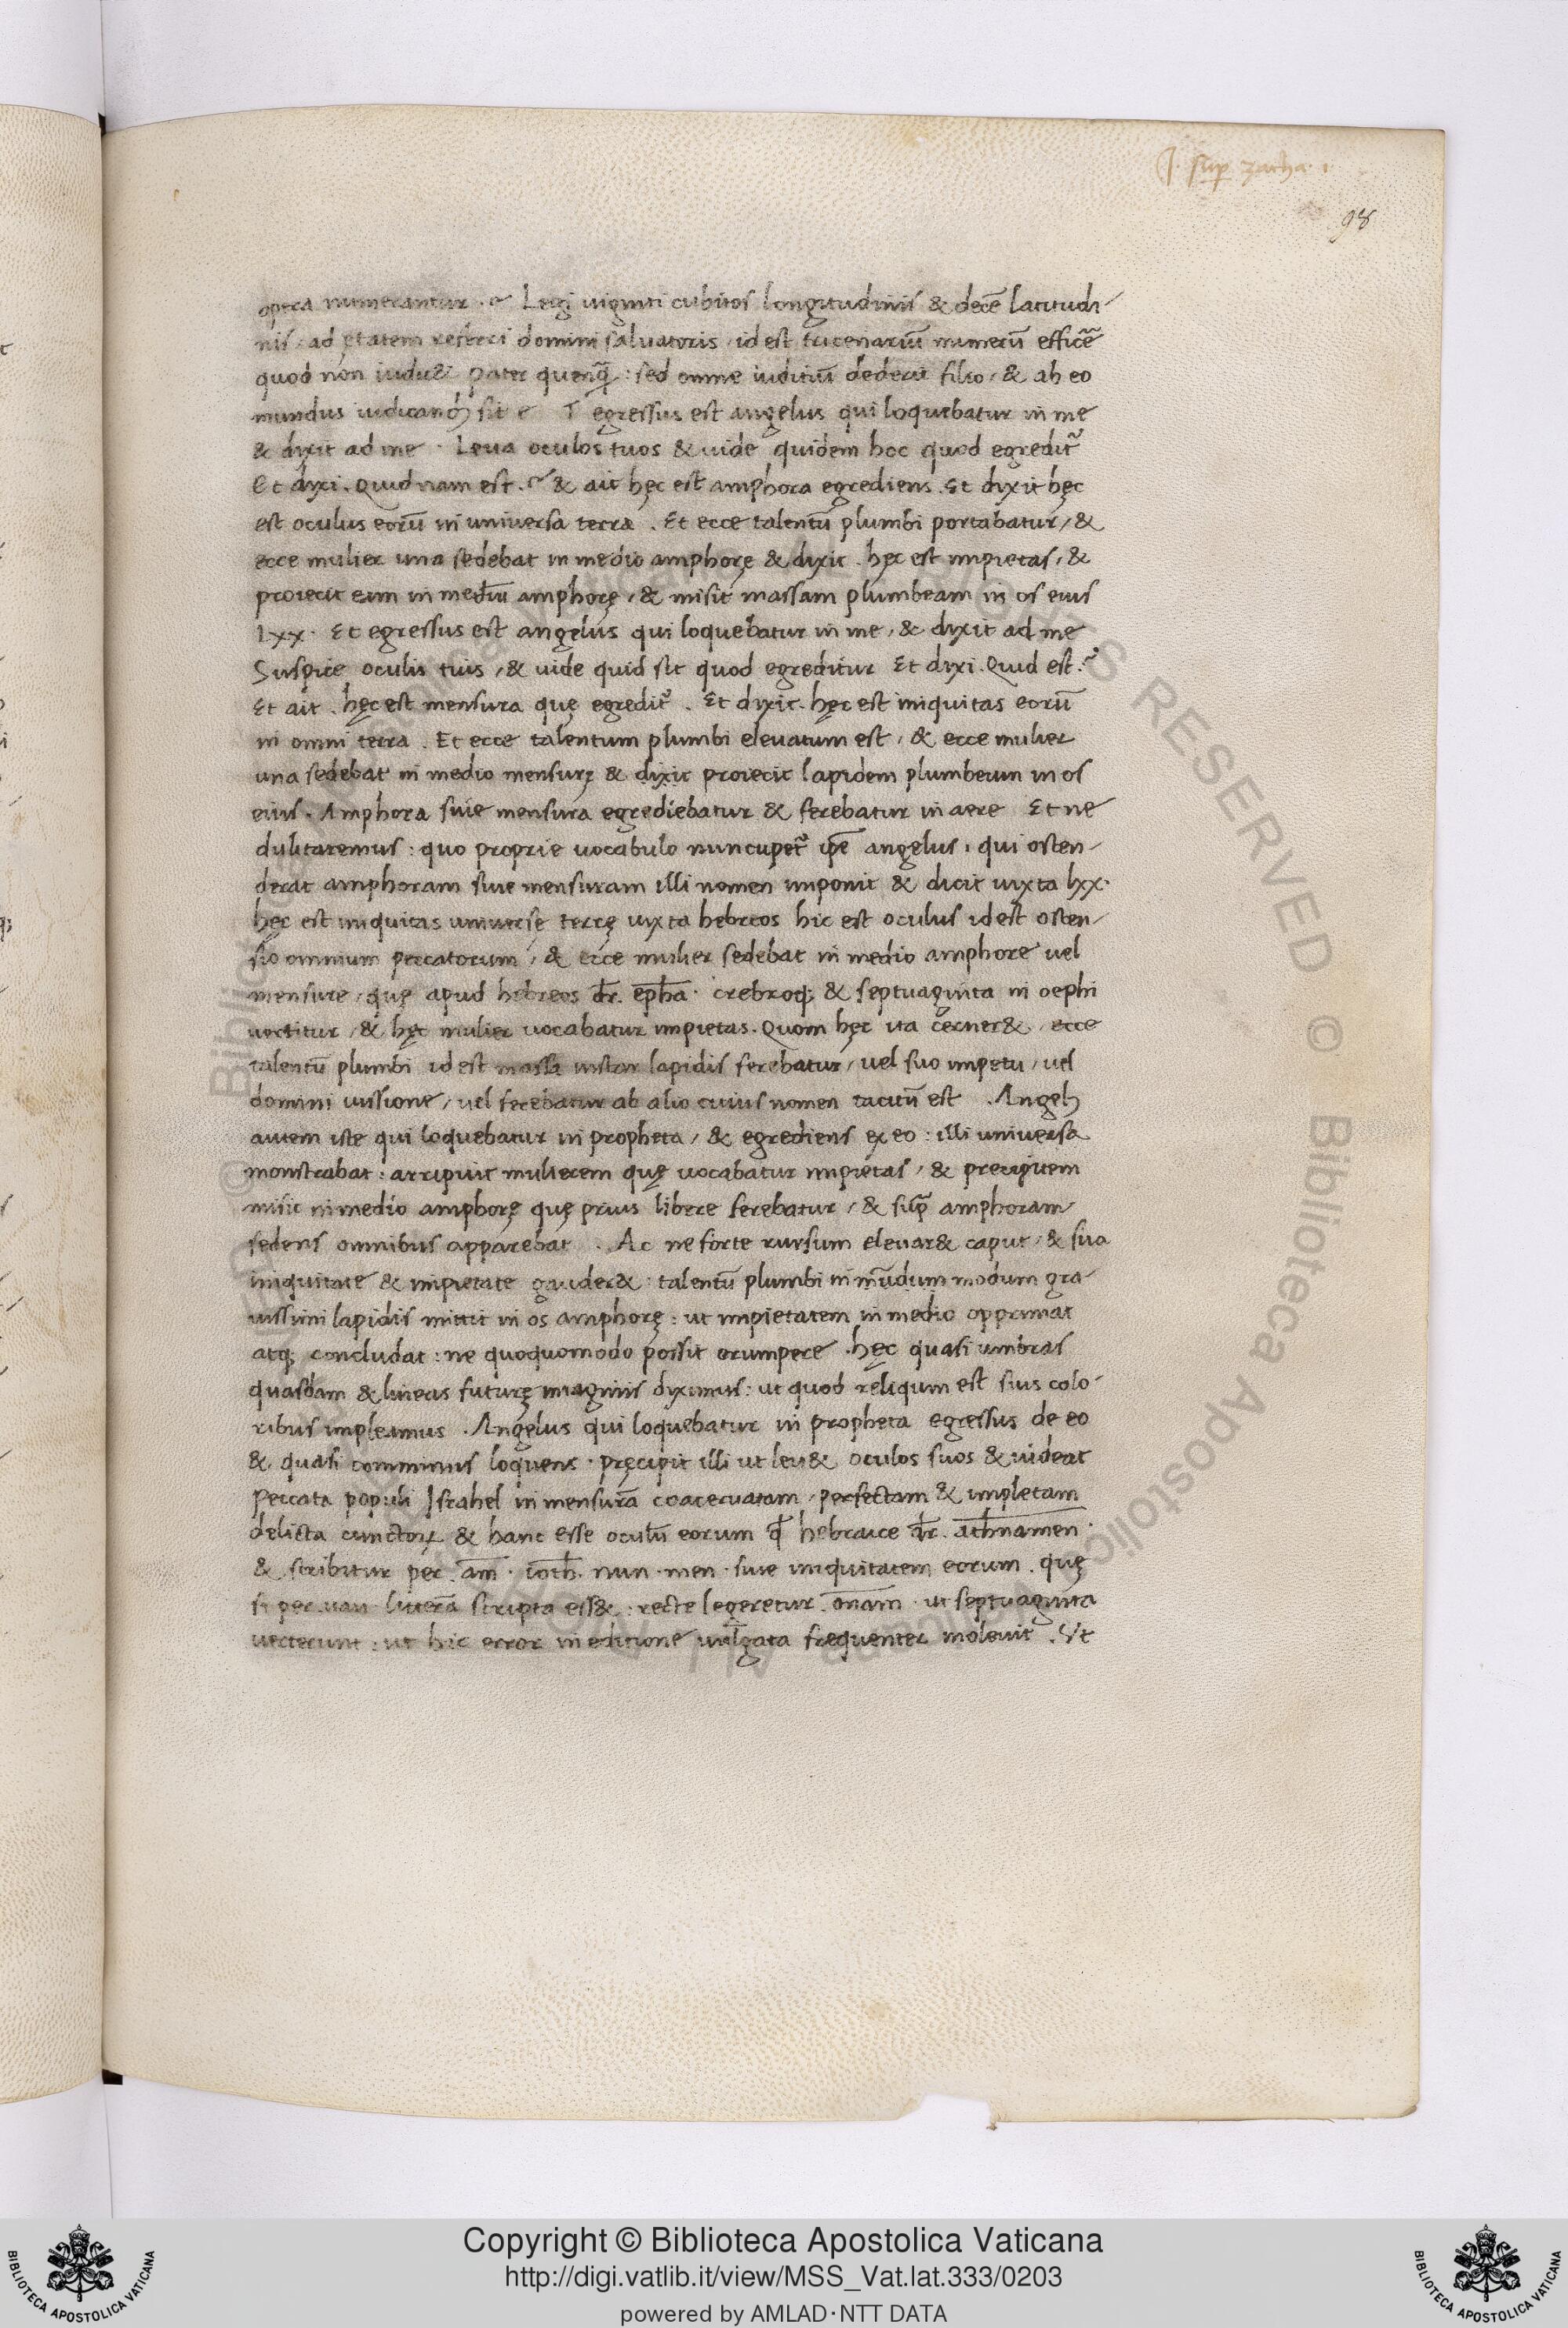 J. sup zacha. 1.
98
opera numerantur .~ Legi uiginti cubitos longitudinis & decē latitudi-
nis, ad ętatem referri domini saluatoris, id est tricenariū numerū efficē
quod non iudic& pater quenq̄ : sed omne iuditiū dederit filio, & ab eo
mundus iudicandꝰ sit e T egressus est angelus qui loquebatur in me
& dixit ad me . Leua oculos tuos & uide quidem hoc quod egredit᷑
Et dixi . Quidnam est .~ & ait hęc est amphora egrediens . Et dixit hęc
est oculus eorū in universa terra . Et ecce talentū plumbi portabatur, &
ecce mulier una sedebat in medio amphorę & dixit . hęc est impietas, &
proiecit eam in mediū amphorę, & misit massam plumbeam in os eius
Lxx . Et egressus est angelus qui loquebatur in me, & dixit ad me
Suspice oculis tuis, & uide quid sit quod egreditur Et dixi . Quid est .~
Et ait . hęc est mensura quę egredit᷑ . Et dixit . hęc est iniquitas eorū
in omni terra . Et ecce talentum plumbi eleuatum est, & ecce mulier
una sedebat in medio mensurę & dixit proiecit lapidem plumbeum in os
eius . Amphora siue mensura egrediebatur & ferebatur in aere Et ne
dubitaremus : quo proprie uocabulo nuncupet᷑ ipse angelus, qui osten-
derat amphoram siue mensuram illi nomen imponit & dicit iuxta lxx.
hęc est iniquitas universę terrę iuxta hebreos hic est oculus id est osten-
sio omnium peccatorum, & ecce mulier sedebat in medio amphore uel
mensure, quę apud hebreos dr̄. ep̄ha . crebroq; & septuaginta in oephi
uertitur, & hęc mulier uocabatur impietas . Quom hęc ita cerner&, ecce
talentū plumbi id est massa instar lapidis ferebatur, uel suo impetu, uel
domini iussione, uel ferebatur ab alio cuius nomen tacitū est . Angelꝰ
autem iste qui loquebatur in propheta, & egrediens ex eo : illi universa
monstrabat : arripuit mulierem quę uocabatur impietas, & precipitem
misit in medio amphorę quę prius libere ferebatur, & sup̄ amphoram
sedens omnibus apparebat . Ac ne forte rursum eleuar& caput, & sua
iniquitate & impietate gauder& : talentū plumbi in mūdum modum gra-
uissimi lapidis mittit in os amphorę : ut impietatem in medio opprimat
atq; concludat : ne quoquomodo possit erumpere . hęc quasi umbras
quasdam & lineas futurę imaginis diximus : ut quod reliqum est suis colo-
ribus impleamus . Angelus qui loquebatur in propheta egressus de eo
& quasi comminus loquens . pręcipit illi ut leu& oculos suos & uideat
peccata populi Israhel in mensurā coaceruatam, perfectam & impletam
delicta cunctoꝝ & hanc esse oculū eorum qd̄ hebraice dr̄. ath̄namen .
& scribitur per . am̄ . ioth̄ . nun . men . siue iniquitatem eorum . quę
si per uau litterā scripta ess& : recte legeretur . onam̄ . ut septuaginta
uerterunt : ut hic error in editione uulgata frequenter inoleuit . Vt
Copyright © Biblioteca Apostolica Vaticana
http://digi.vatlib.it/view/MSS_Vat.lat.333/0203
powered by AMLAD·NTT DATA
BIBLIOTECA APOSTOLICA VATICANA
BIBLIOTECA APOSTOLICA VATICANA